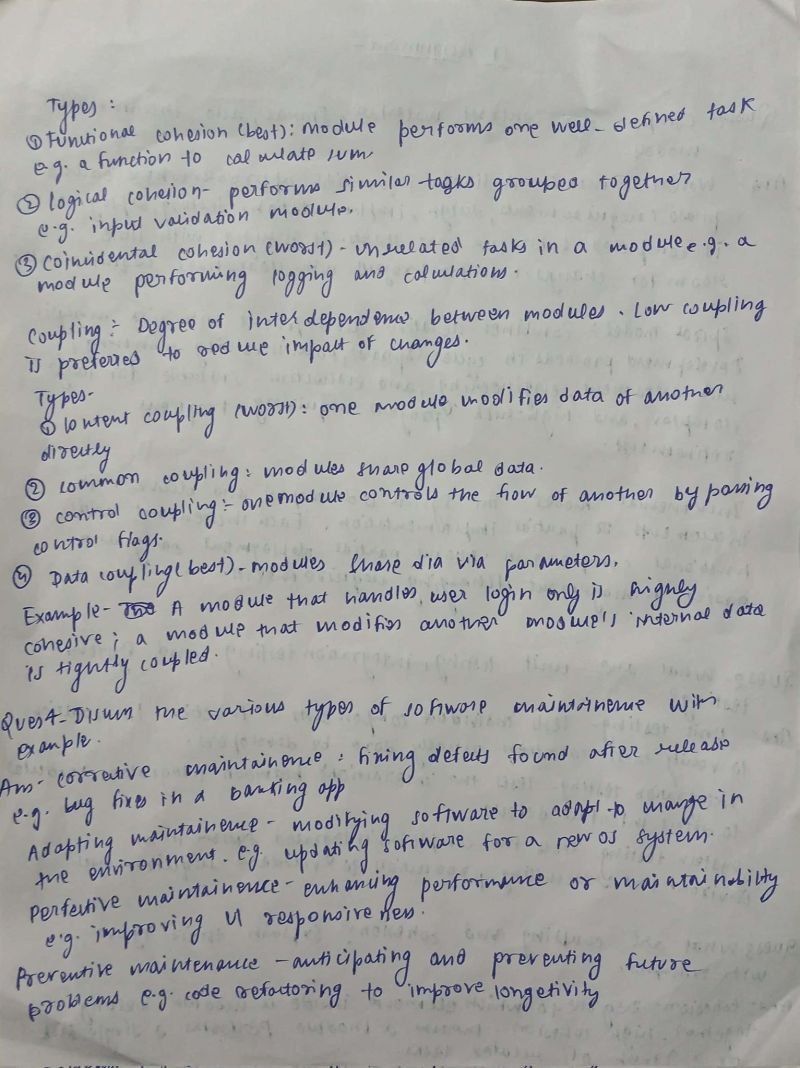 Types :
① Functional cohesion (best): module performs one well-defined task
e.g. a function to calculate sum
② logical cohesion- performs similar tasks grouped together
e.g. input validation module.
③ Coincidental cohesion (worst) - unrelated tasks in a module e.g. a
module performing logging and calculations.
Coupling :- Degree of interdependence between modules. Low coupling
is preferred to reduce impact of changes.
Types-
① Content coupling (worst): one module modifies data of another
directly
② common coupling: modules share global data.
③ control coupling:- one module controls the flow of another by passing
control flags.
④ Data coupling (best) - modules share dia via parameters.
Example- A module that handles user login only is highly
cohesive; a module that modifies another module's internal data
is tightly coupled.
Ques4- Discuss the various types of software maintainence with
example.
Ans- corrective maintainence : fixing defects found after release
e.g. bug fixes in a banking app
Adapting maintainence - modifying software to adapt to change in
the environment. e.g. updating software for a new os system.
Perfective maintainence - enhancing performance or maintainability
e.g. improving UI responsiveness.
Preventive maintenance - anticipating and preventing future
problems e.g. code refactoring to improve longetivity